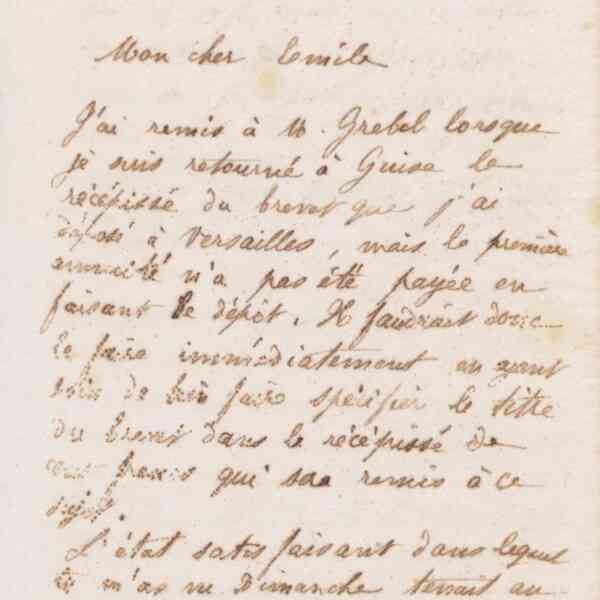 Mon cher Emile
J'ai remis à M. Grebel lorsque
je suis retourné à Guise le
récépissé du brevet que j'ai
déposé à Versailles, mais la première
annuité n'a pas été payée en
faisant le dépôt. Il faudrait donc
le faire immédiatement en ayant
soin de bien faire spécifier le titre
du brevet dans le récépissé de
cent francs qui sera remis à ce
sujet.
L'état satisfaisant dans lequel
tu m'as vu Dimanche tenait au